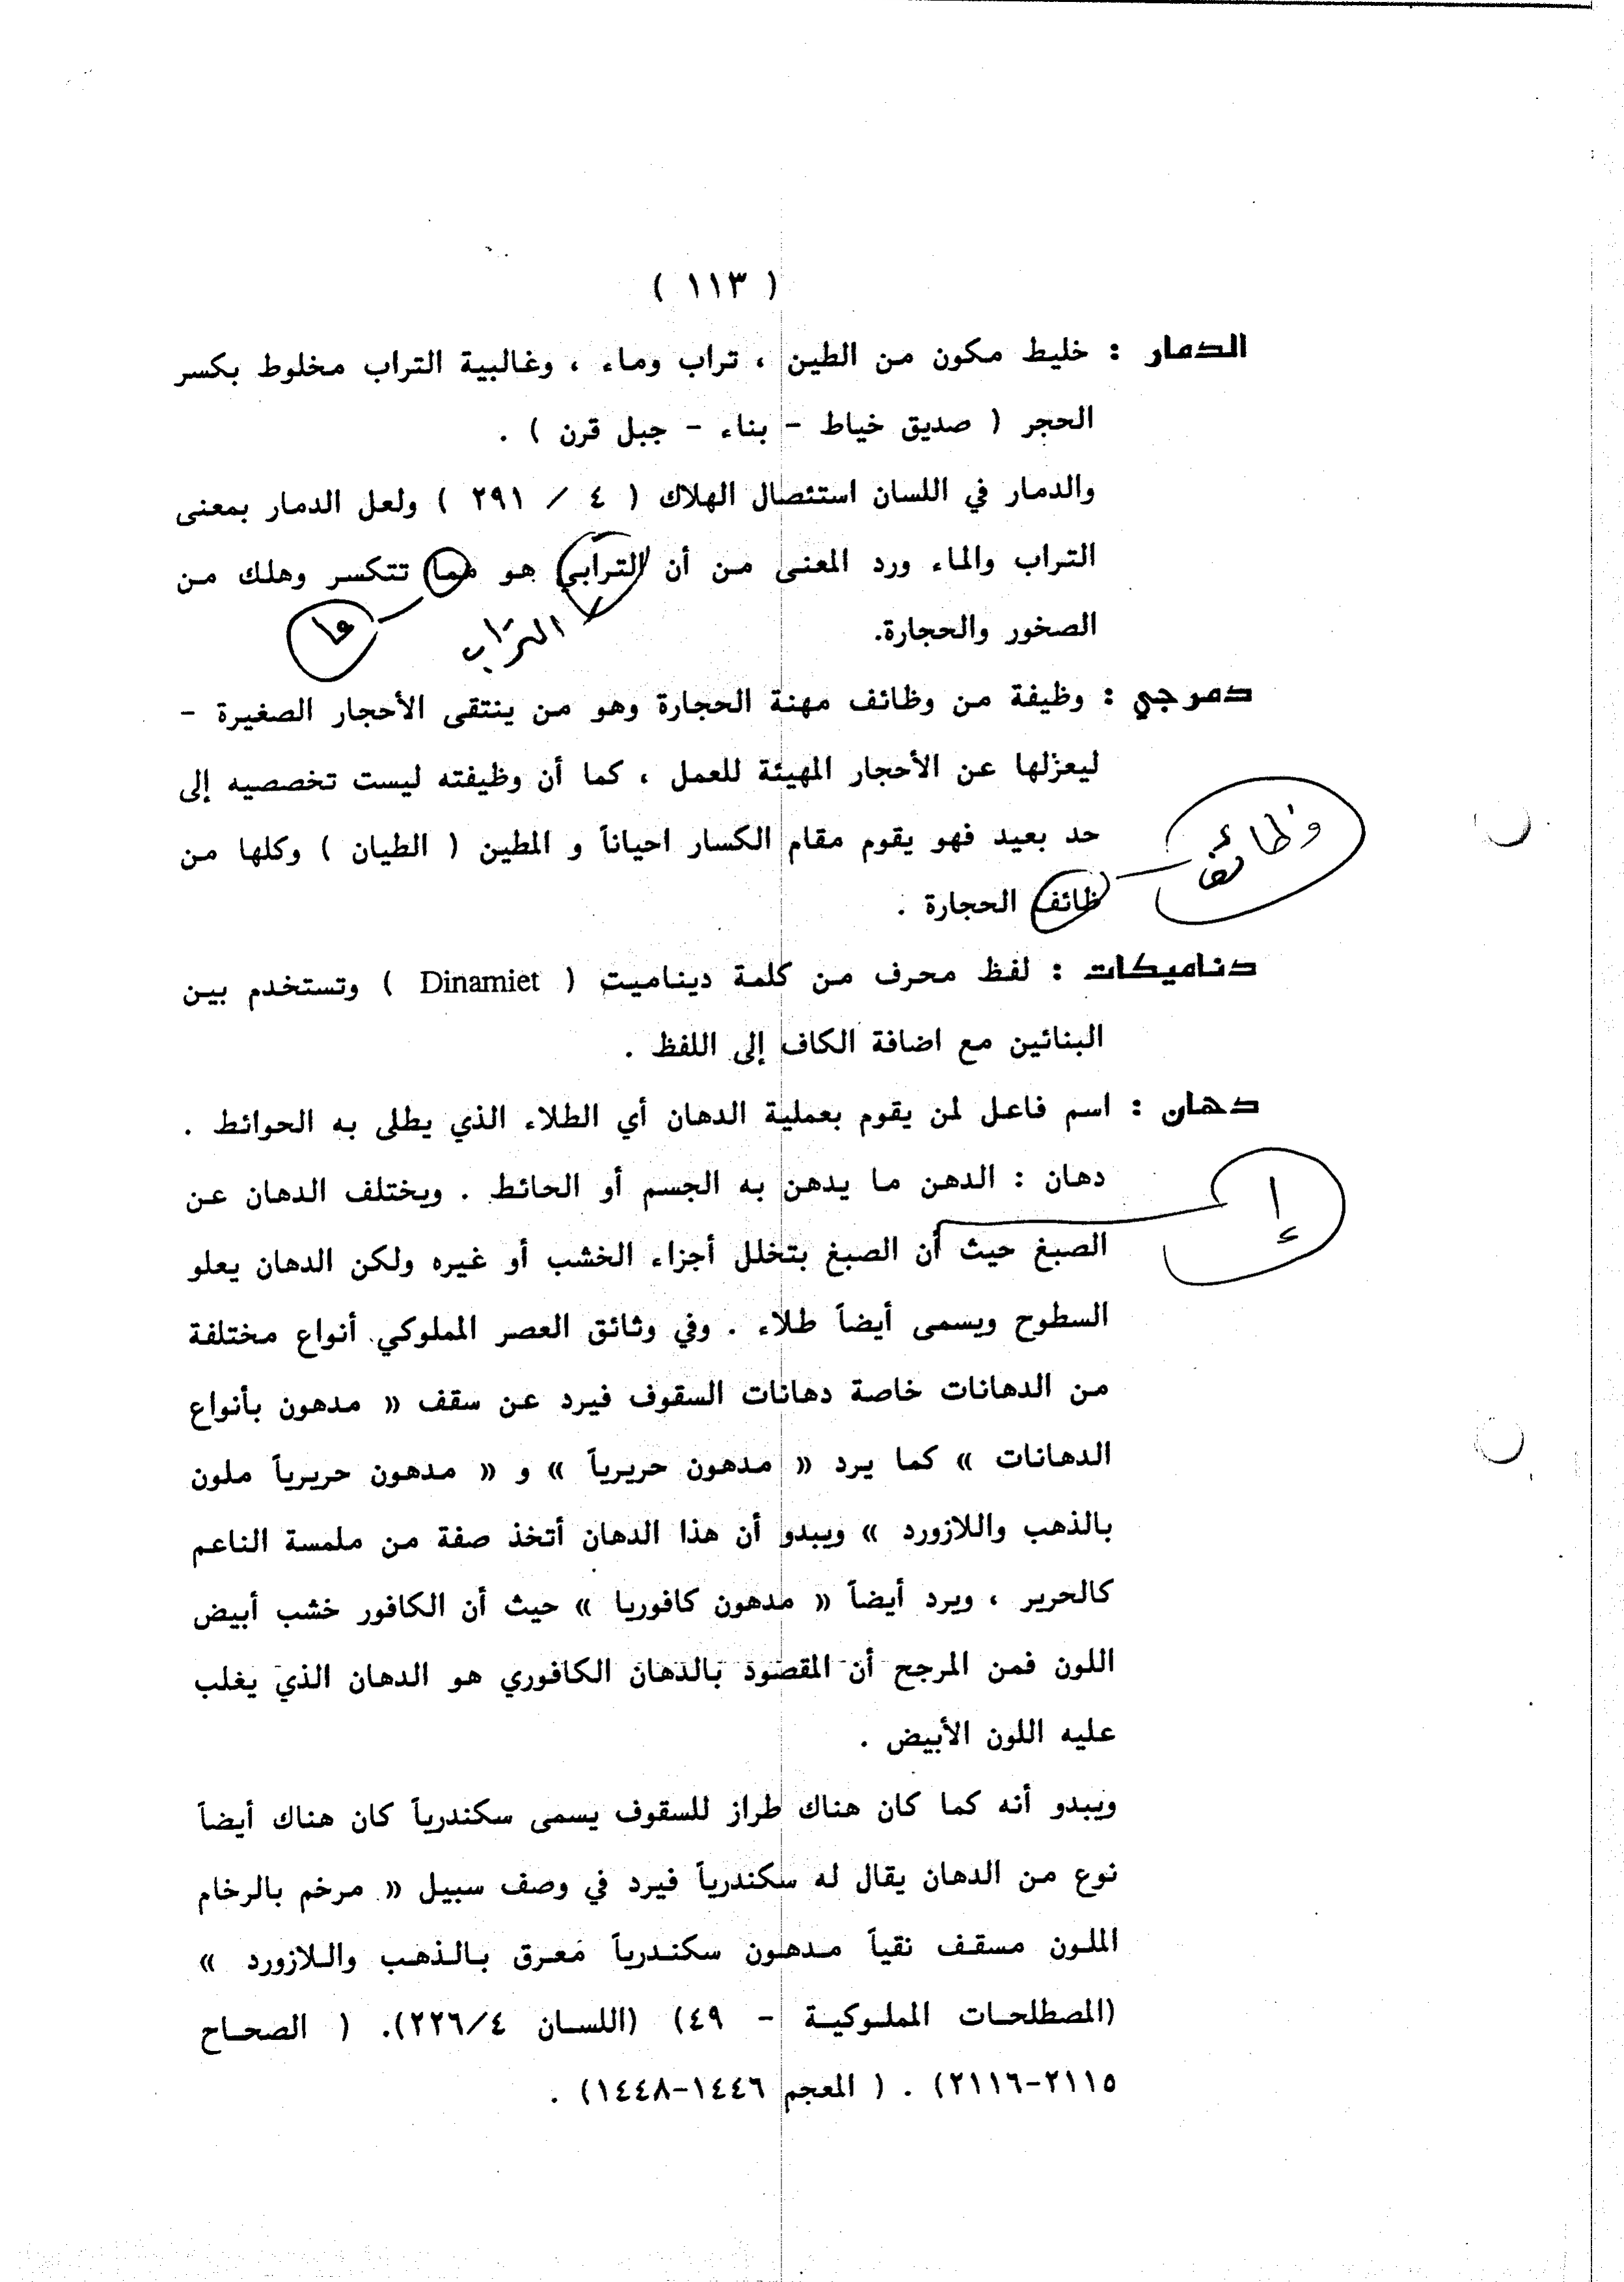 ( ١١٣ )
الدمار : خليط مكون من الطين ، تراب وماء ، وغالبية التراب مخلوط بكسر
الحجر ( صديق خياط - بناء - جبل قرن ) .
والدمار في اللسان استئصال الهلاك ( ٤ / ٢٩١ ) ولعل الدمار بمعنى
التراب والماء ورد المعنى من أن الترابي هو مما تتكسر وهلك من
ما
التراب
الصخور والحجارة.
دموجي : وظيفة من وظائف مهنة الحجارة وهو من ينتقى الأحجار الصغيرة -
ليعزلها عن الأحجار المهيئة للعمل ، كما أن وظيفته ليست تخصصيه إلى
حد بعيد فهو يقوم مقام الكسار احياناً و المطين ( الطيان ) وكلها من
وظائف
ظائف الحجارة .
دناميكات : لفظ محرف من كلمة ديناميت ( Dinamiet ) وتستخدم بين
البنائين مع اضافة الكاف إلى اللفظ .
دهان : اسم فاعل لمن يقوم بعملية الدهان أي الطلاء الذي يطلى به الحوائط .
دهان : الدهن ما يدهن به الجسم أو الحائط . ويختلف الدهان عن
إ
الصبغ حيث أن الصبغ بتخلل أجزاء الخشب أو غيره ولكن الدهان يعلو
السطوح ويسمى أيضاً طلاء . وفي وثائق العصر المملوكي أنواع مختلفة
من الدهانات خاصة دهانات السقوف فيرد عن سقف « مدهون بأنواع
الدهانات » كما يرد « مدهون حريرياً » و « مدهون حريرياً ملون
بالذهب واللازورد » ويبدو أن هذا الدهان أتخذ صفة من ملمسة الناعم
كالحرير ، ويرد أيضاً « مدهون كافوريا » حيث أن الكافور خشب أبيض
اللون فمن المرجح أن المقصود بالدهان الكافوري هو الدهان الذي يغلب
عليه اللون الأبيض .
ويبدو أنه كما كان هناك طراز للسقوف يسمى سكندرياً كان هناك أيضاً
نوع من الدهان يقال له سكندرياً فيرد في وصف سبيل « مرخم بالرخام
الملون مسقف نقياً مدهون سكندرياً معرق بالذهب واللازورد »
(المصطلحات المملوكية - ٤٩) (اللسان ٢٢٦/٤). ( الصحاح
٢١١٥-٢١١٦) . ( المعجم ١٤٤٦-١٤٤٨) .